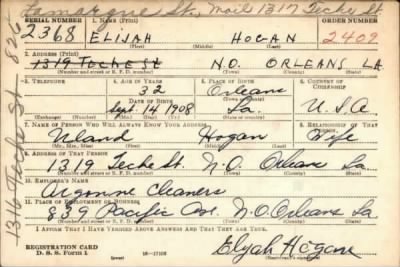 St., Mail 1317 Teche St.
SERIAL NUMBER 1. NAME (Print) ORDER NUMBER
2368 ELIJAH HOGAN 2409
(First) (Middle) (Last)
2. ADDRESS (Print)
1319 Teche St N.O. ORLEANS LA
(Number and street or R. F. D. number) (Town) (County) (State)
3. TELEPHONE 4. AGE IN YEARS 5. PLACE OF BIRTH 6. COUNTRY OF CITIZENSHIP
32 Orleans
DATE OF BIRTH (Town or county)
Sept. 14 1908 La. U.S.A
(Exchange) (No.) (Mo.) (Day) (Yr.) (State or country)
7. NAME OF PERSON WHO WILL ALWAYS KNOW YOUR ADDRESS 8. RELATIONSHIP OF THAT PERSON
Hogan Wife
(Mr., Mrs., Miss) (First) (Middle) (Last)
9. ADDRESS OF THAT PERSON
1319 Teche St. N.O. Orleans La
(Number and street or R. F. D. number) (Town) (County) (State)
10. EMPLOYER'S NAME
Argonne Cleaners
11. PLACE OF EMPLOYMENT OR BUSINESS
839 Pacific Ave. N.O. Orleans La
(Number and street or R. F. D. number) (Town) (County) (State)
I AFFIRM THAT I HAVE VERIFIED ABOVE ANSWERS AND THAT THEY ARE TRUE.
REGISTRATION CARD
D. S. S. Form 1 (over) Elijah Hogan
(Registrant's signature)